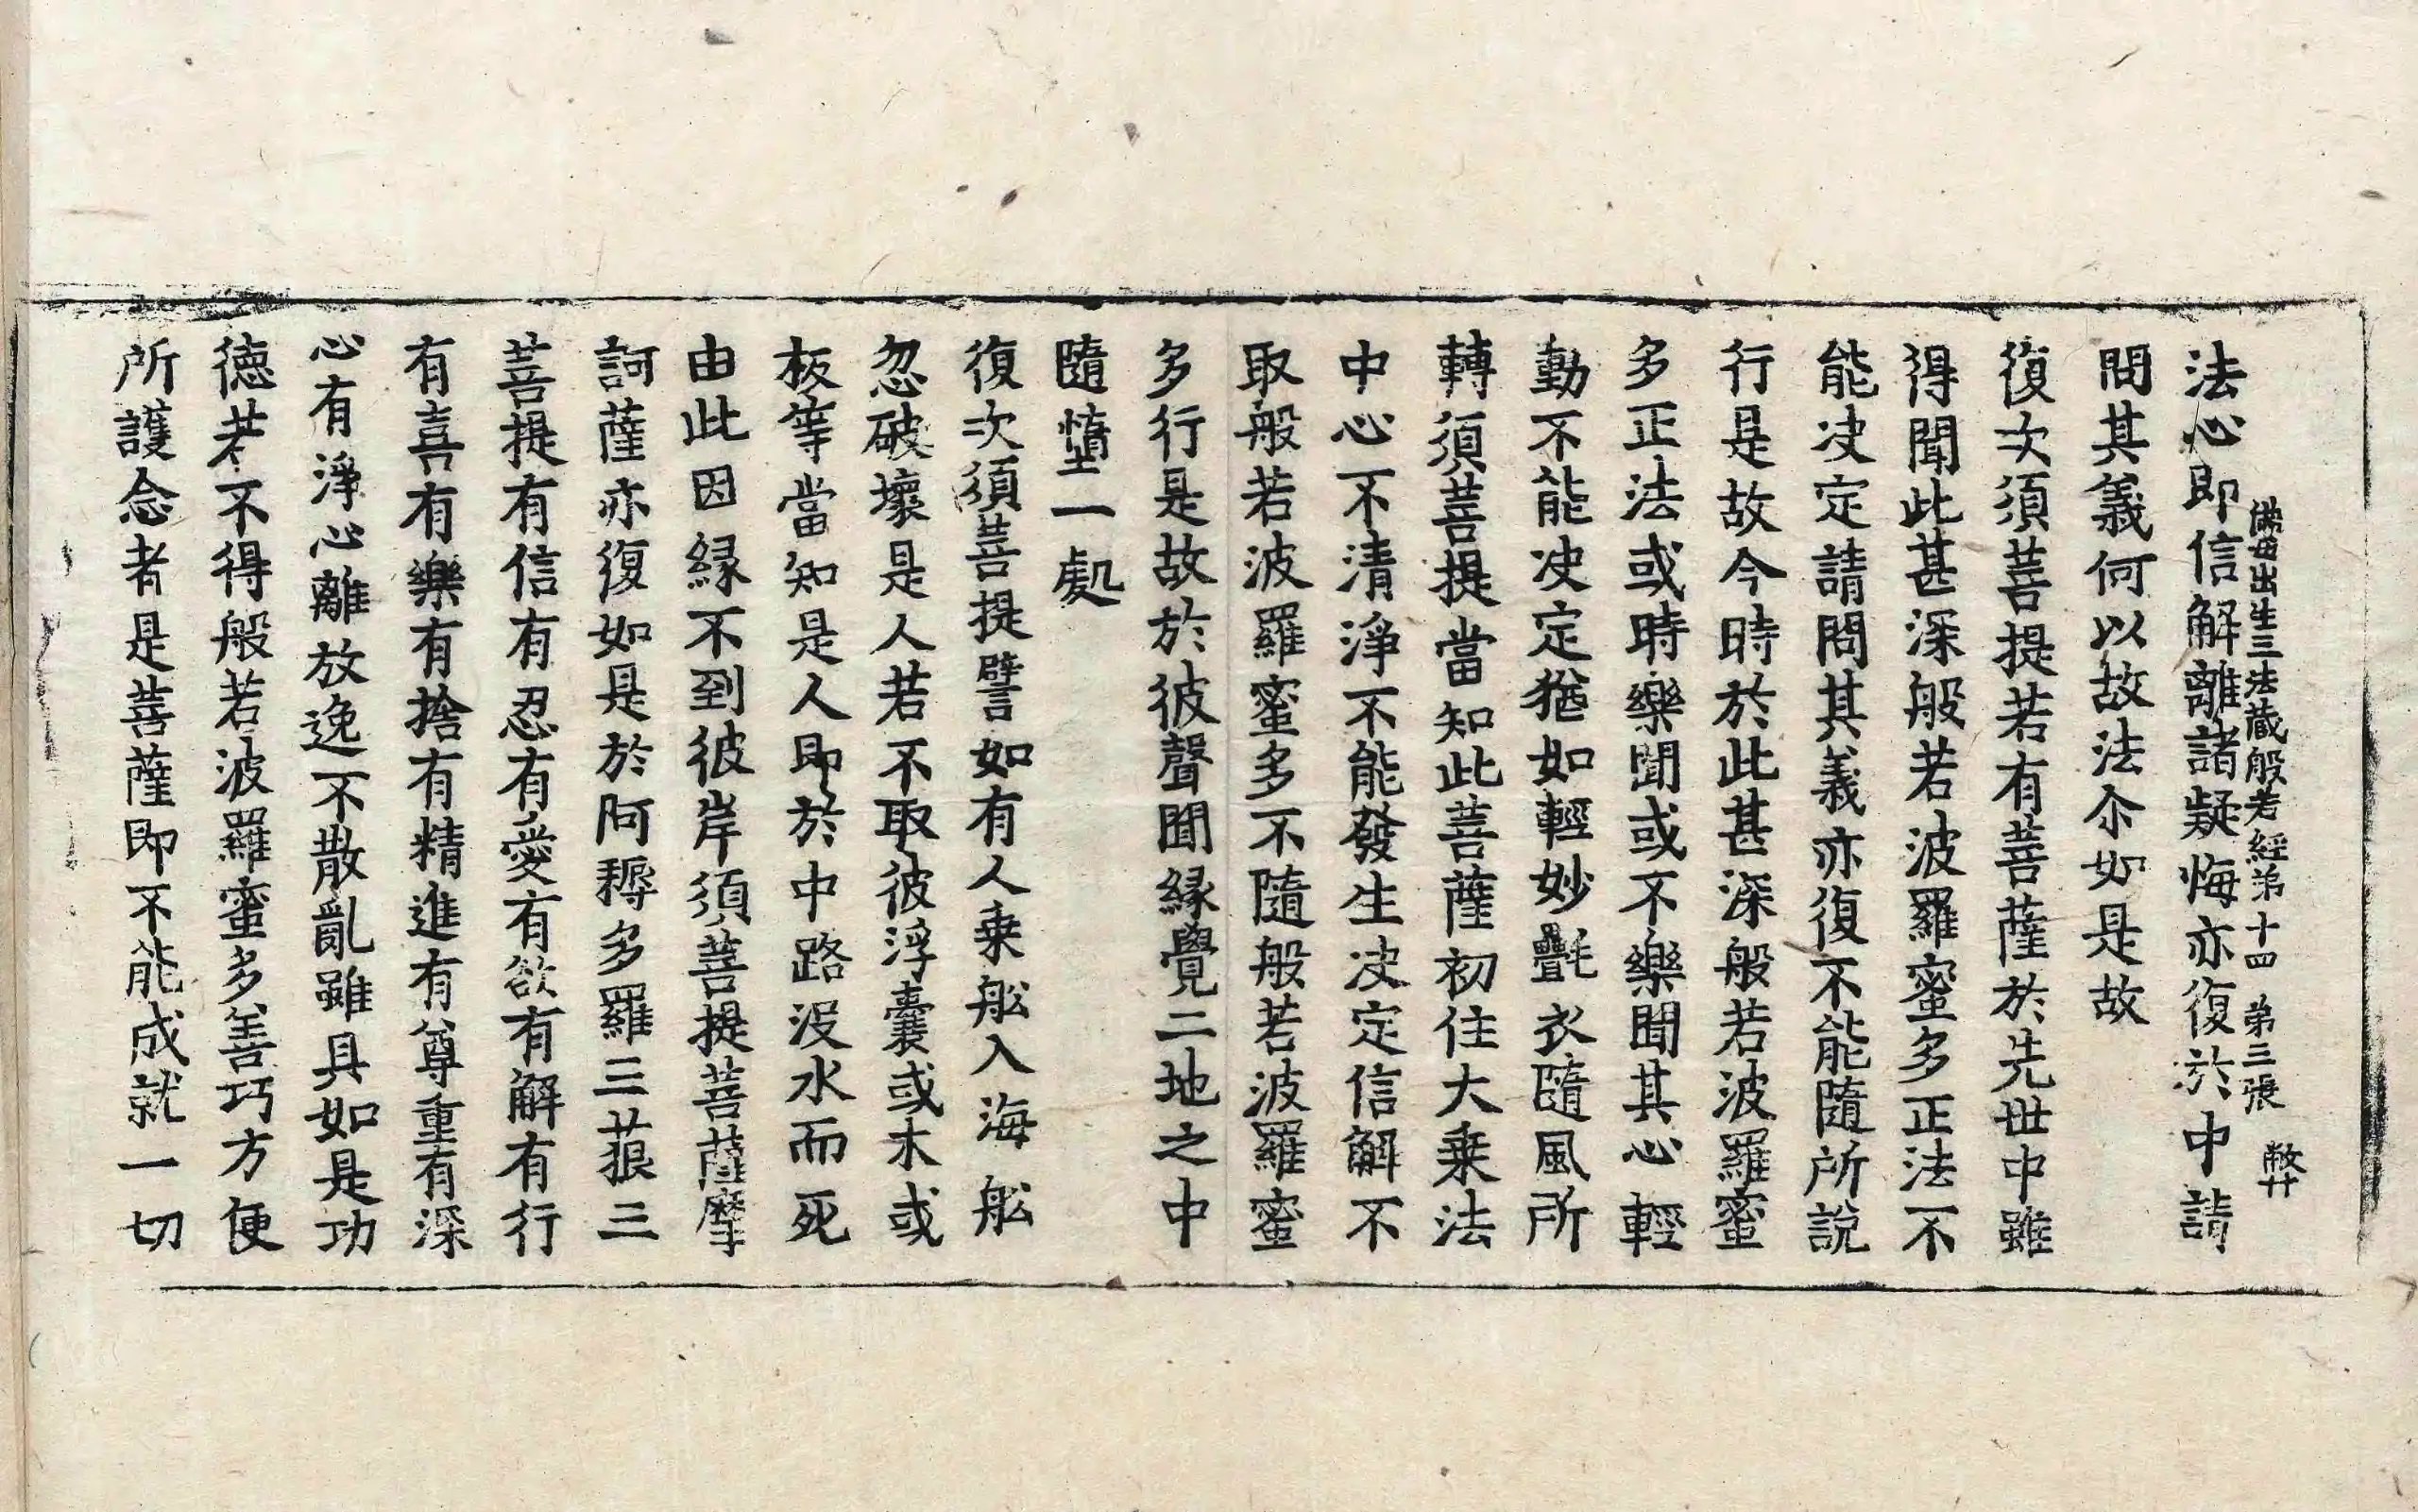 佛母出生三法藏般若經第十四　第三張　弊
法心即信解離諸疑悔亦復於中請
問其義何以故法尒如是故
復次須菩提若有菩薩於先世中雖
得聞此甚深般若波羅蜜多正法不
能决定請問其義亦復不能隨所說
行是故今時於此甚深般若波羅蜜
多正法或時樂聞或不樂聞其心輕
動不能决定猶如輕妙㲲衣隨風所
轉須菩提當知此菩薩初住大乗法
中心不清淨不能發生决定信解不
取般若波羅蜜多不隨般若波羅蜜
多行是故於彼聲聞緣覺二地之中
隨墮一處
復次須菩提譬如有人乗舩入海舩
忽破壞是人若不取彼浮囊或木或
板等當知是人即於中路沒水而死
由此因緣不到彼岸須菩提菩薩摩
訶薩亦復如是於阿耨多羅三藐三
菩提有信有忍有愛有欲有解有行
有喜有樂有捨有精進有尊重有深
心有淨心離放逸不散亂雖具如是功
德若不得般若波羅蜜多善巧方便
所護念者是菩薩即不能成就一切